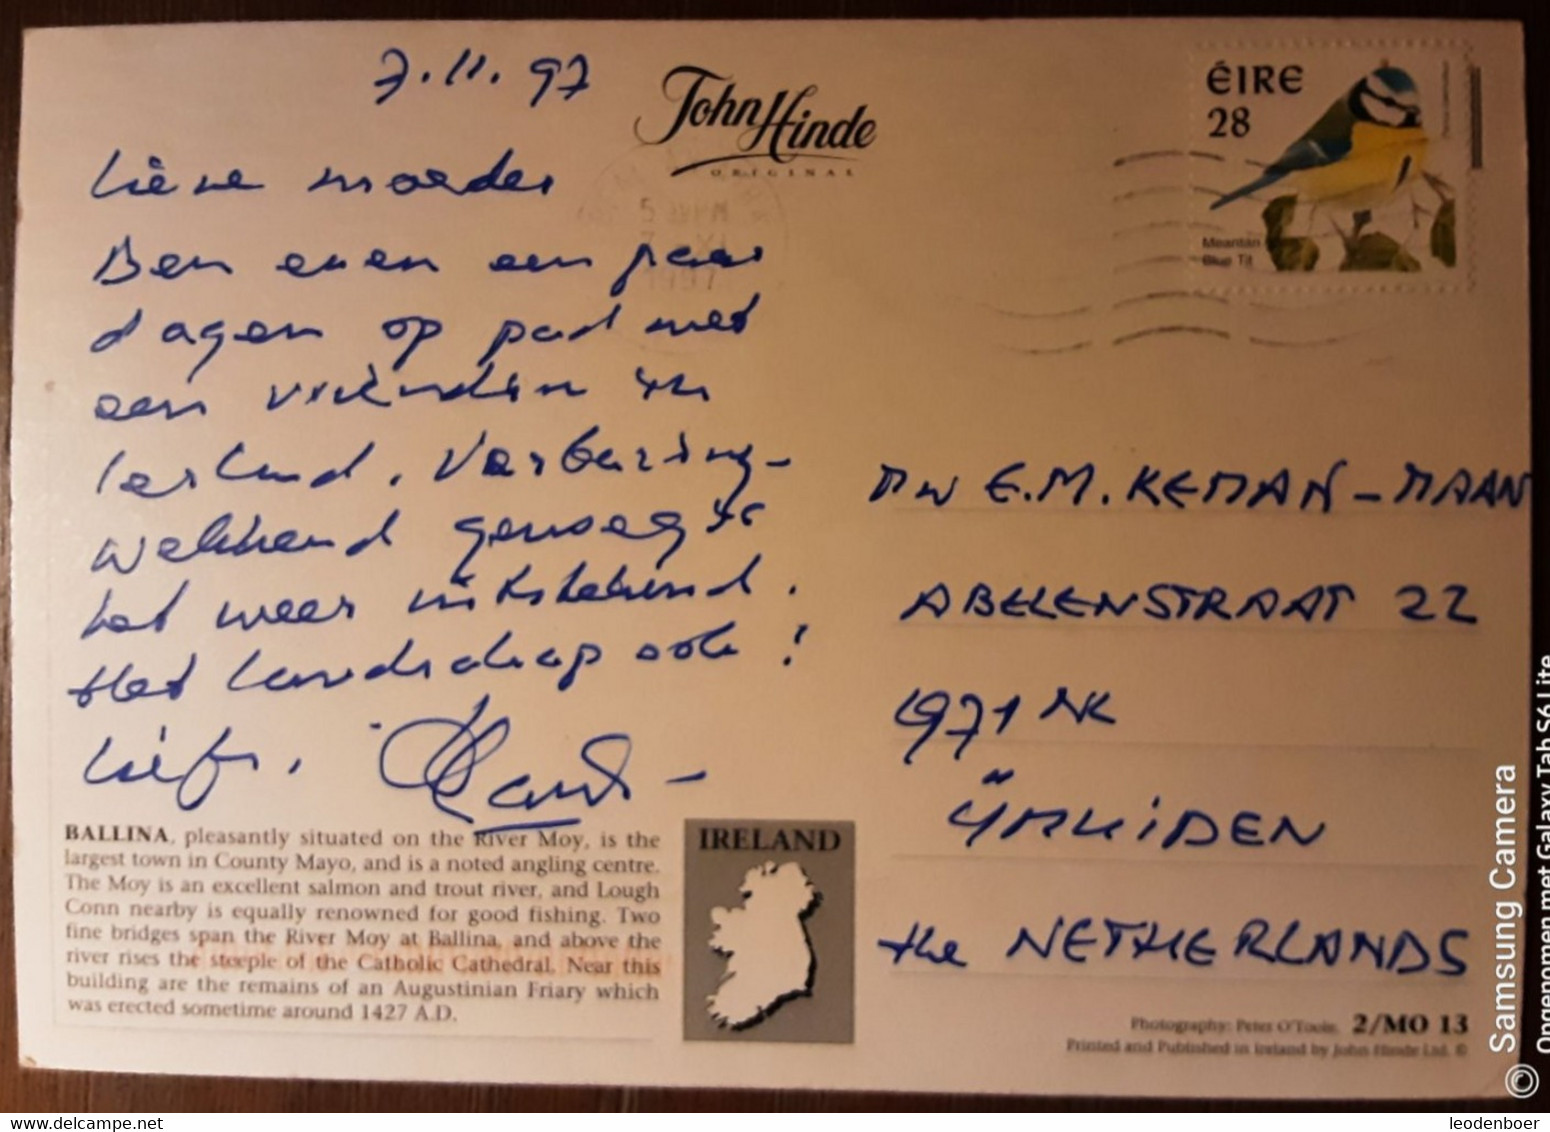 7.11.97
John Hinde
ORIGINAL
ÉIRE
28
Meantán
Blue Tit
1997
Lieve moeder
Ben even een paar
dagen op pad met
een vriendin in
Ierland. Verbazing-
wekkend genoeg is
het weer uitstekend.
Het landschap ook!
Liefs,
Mw E.M. KEMAN-MAAN
ABELENSTRAAT 22
1971 NK
IJMUIDEN
the NETHERLANDS
BALLINA, pleasantly situated on the River Moy, is the
largest town in County Mayo, and is a noted angling centre.
The Moy is an excellent salmon and trout river, and Lough
Conn nearby is equally renowned for good fishing. Two
fine bridges span the River Moy at Ballina, and above the
river rises the steeple of the Catholic Cathedral. Near this
building are the remains of an Augustinian Friary which
was erected sometime around 1427 A.D.
IRELAND
Photography: Peter O'Toole. 2/MO 13
Printed and Published in Ireland by John Hinde Ltd. ©
© Samsung Camera
Opgenomen met Galaxy Tab S6 Lite
delcampe.net
leodenboer